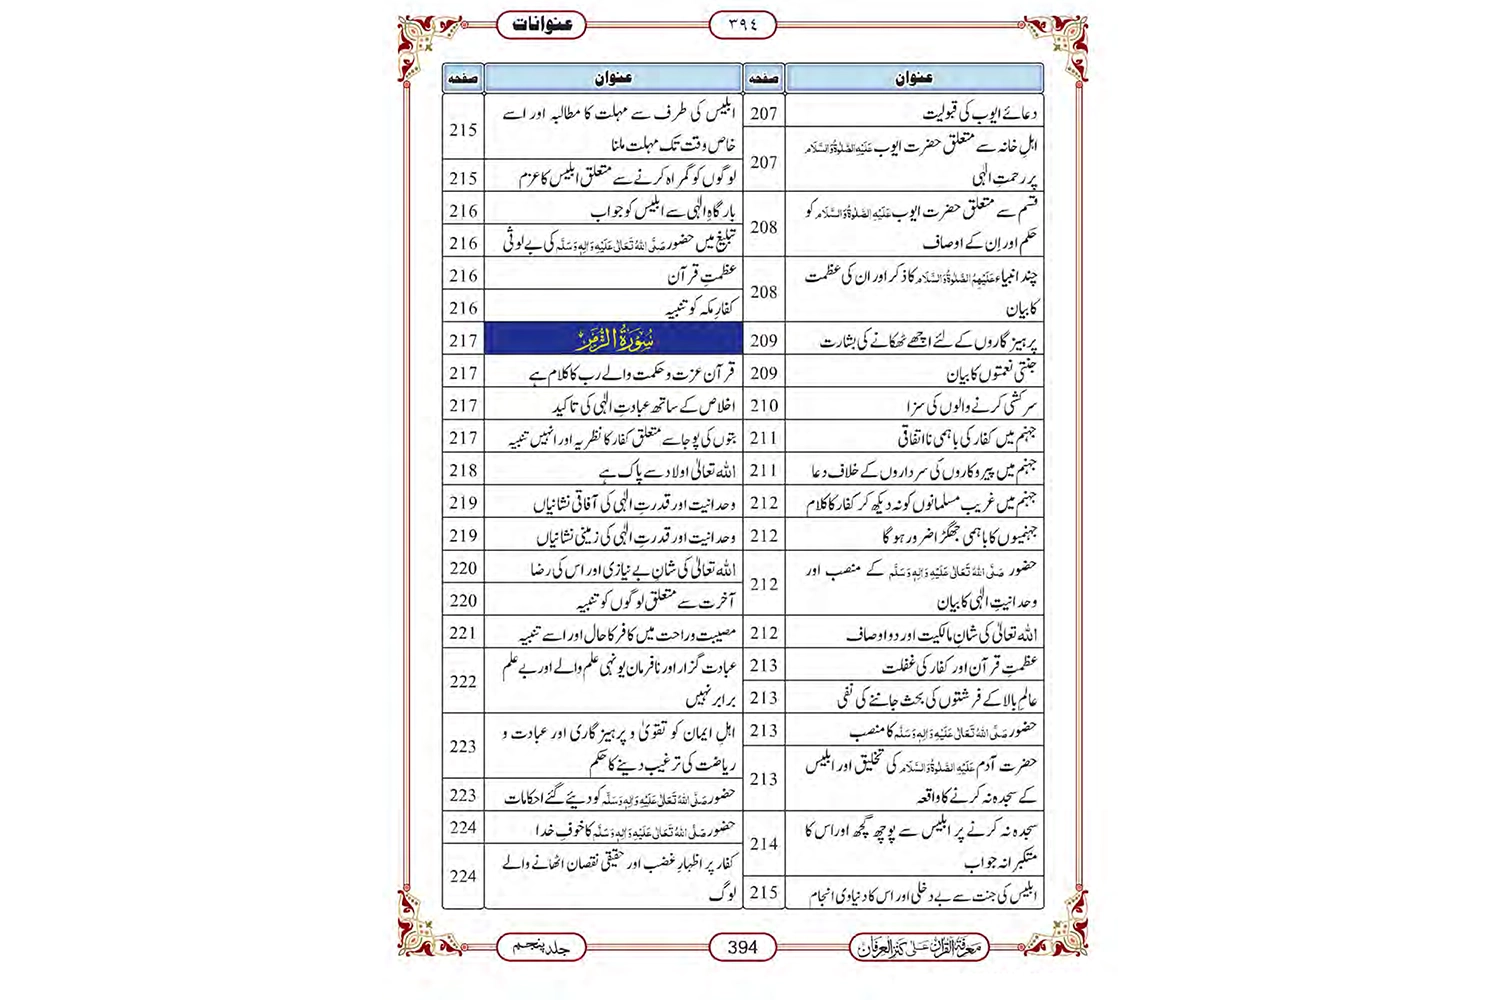 عنوانات
٣٩٤
عنوان
صفحہ
دعائے ایوب کی قبولیت
207
اہلِ خانہ سے متعلق حضرت ایوب عَلَیْہِ الصَّلٰوۃُ وَالسَّلَام
پر رحمتِ الٰہی
207
قسم سے متعلق حضرت ایوب عَلَیْہِ الصَّلٰوۃُ وَالسَّلَام کو
حکم اور اِن کے اوصاف
208
چند انبیاء عَلَیْہِمُ الصَّلٰوۃُ وَالسَّلَام کا ذکر اور ان کی عظمت
کا بیان
208
پرہیز گاروں کے لئے اچھے ٹھکانے کی بشارت
209
جنتی نعمتوں کا بیان
209
سرکشی کرنے والوں کی سزا
210
جہنم میں کفار کی باہمی نااتفاقی
211
جہنم میں پیروکاروں کی سرداروں کے خلاف دعا
211
جہنم میں غریب مسلمانوں کو نہ دیکھ کر کفار کا کلام
212
جہنمیوں کا باہمی جھگڑا ضرور ہو گا
212
حضور صَلَّی اللہُ تَعَالٰی عَلَیْہِ وَاٰلِہٖ وَسَلَّم کے منصب اور
وحدانیتِ الٰہی کا بیان
212
اللہ تعالیٰ کی شانِ مالکیت اور دو اوصاف
212
عظمتِ قرآن اور کفار کی غفلت
213
عالمِ بالا کے فرشتوں کی بحث جاننے کی نفی
213
حضور صَلَّی اللہُ تَعَالٰی عَلَیْہِ وَاٰلِہٖ وَسَلَّم کا منصب
213
حضرت آدم عَلَیْہِ الصَّلٰوۃُ وَالسَّلَام کی تخلیق اور ابلیس
کے سجدہ نہ کرنے کا واقعہ
213
سجدہ نہ کرنے پر ابلیس سے پوچھ گچھ اور اس کا
متکبرانہ جواب
214
ابلیس کی جنت سے بے دخلی اور اس کا دنیاوی انجام
215
عنوان
صفحہ
ابلیس کی طرف سے مہلت کا مطالبہ اور اسے
خاص وقت تک مہلت ملنا
215
لوگوں کو گمراہ کرنے سے متعلق ابلیس کا عزم
215
بارگاہِ الٰہی سے ابلیس کو جواب
216
تبلیغ میں حضور صَلَّی اللہُ تَعَالٰی عَلَیْہِ وَاٰلِہٖ وَسَلَّم کی بے لوثی
216
عظمتِ قرآن
216
کفارِ مکہ کو تنبیہ
216
سُوْرَۃُ الزُّمَر
217
قرآن عزت و حکمت والے رب کا کلام ہے
217
اخلاص کے ساتھ عبادتِ الٰہی کی تاکید
217
بتوں کی پوجا سے متعلق کفار کا نظریہ اور انہیں تنبیہ
217
اللہ تعالیٰ اولاد سے پاک ہے
218
وحدانیت اور قدرتِ الٰہی کی آفاقی نشانیاں
219
وحدانیت اور قدرتِ الٰہی کی زمینی نشانیاں
219
اللہ تعالیٰ کی شانِ بے نیازی اور اس کی رضا
220
آخرت سے متعلق لوگوں کو تنبیہ
220
مصیبت و راحت میں کافر کا حال اور اسے تنبیہ
221
عبادت گزار اور نافرمان یونہی علم والے اور بے علم
برابر نہیں
222
اہلِ ایمان کو تقویٰ و پرہیز گاری اور عبادت و
ریاضت کی ترغیب دینے کا حکم
223
حضور صَلَّی اللہُ تَعَالٰی عَلَیْہِ وَاٰلِہٖ وَسَلَّم کو دیئے گئے احکامات
223
حضور صَلَّی اللہُ تَعَالٰی عَلَیْہِ وَاٰلِہٖ وَسَلَّم کا خوفِ خدا
224
کفار پر اظہارِ غضب اور حقیقی نقصان اٹھانے والے
لوگ
224
معرفۃ القرآن علٰی کنز العرفان
394
جلد پنجم